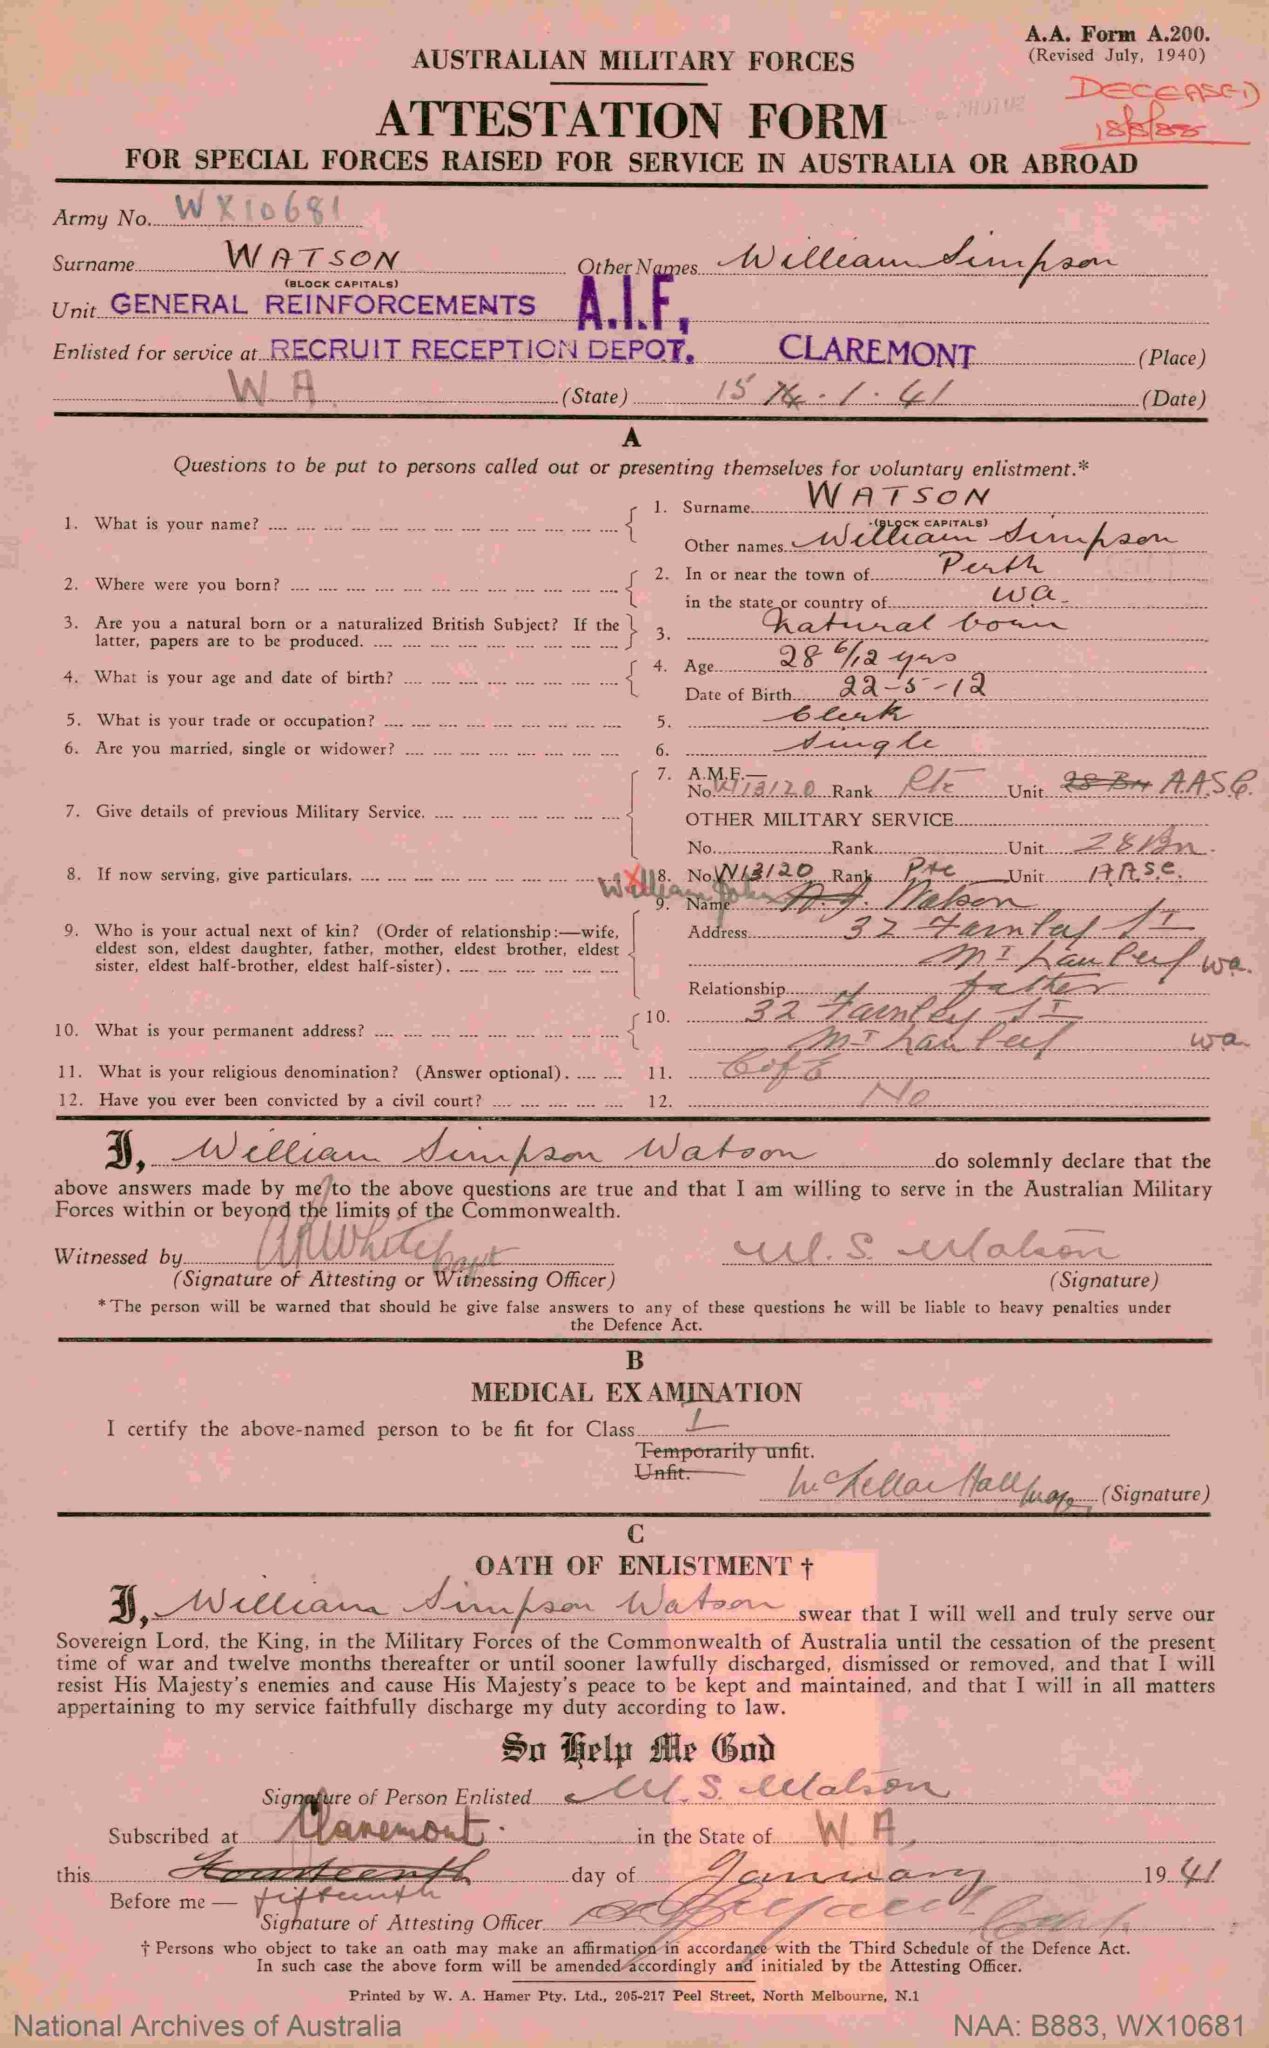 A.A. Form A.200.
(Revised July, 1940)
AUSTRALIAN MILITARY FORCES
DECEASED
18/8/88
ATTESTATION FORM
FOR SPECIAL FORCES RAISED FOR SERVICE IN AUSTRALIA OR ABROAD
Army No. WX10681
Surname WATSON Other Names William Simpson
(BLOCK CAPITALS)
Unit GENERAL REINFORCEMENTS A.I.F,
Enlisted for service at RECRUIT RECEPTION DEPOT. CLAREMONT (Place)
W A. (State) 15 14 . 1 . 41 (Date)
A
Questions to be put to persons called out or presenting themselves for voluntary enlistment.*
1. What is your name? 1. Surname WATSON
(BLOCK CAPITALS)
Other names William Simpson
2. Where were you born? 2. In or near the town of Perth
in the state or country of WA.
3. Are you a natural born or a naturalized British Subject? If the latter, papers are to be produced. 3. Natural born
4. What is your age and date of birth? 4. Age 28 6/12 yrs
Date of Birth 22-5-12
5. What is your trade or occupation? 5. Clerk
6. Are you married, single or widower? 6. Single
7. Give details of previous Military Service. 7. A.M.F.—
No. W13120 Rank Pte Unit 28 Bn A.A.S.C.
OTHER MILITARY SERVICE
No. Rank Unit 28 Bn.
8. If now serving, give particulars. X 8. No. W13120 Rank Pte Unit A.A.S.C.
William John
9. Name Watson
9. Who is your actual next of kin? (Order of relationship:—wife, eldest son, eldest daughter, father, mother, eldest brother, eldest sister, eldest half-brother, eldest half-sister). Address 32 Farnley St
Mt Lawley WA.
Relationship father
10. What is your permanent address? 10. 32 Farnley St
Mt Lawley WA
11. What is your religious denomination? (Answer optional). 11. C of E
12. Have you ever been convicted by a civil court? 12. No
I, William Simpson Watson do solemnly declare that the
above answers made by me to the above questions are true and that I am willing to serve in the Australian Military
Forces within or beyond the limits of the Commonwealth.
Witnessed by White Capt W. S. Watson
(Signature of Attesting or Witnessing Officer) (Signature)
*The person will be warned that should he give false answers to any of these questions he will be liable to heavy penalties under
the Defence Act.
B
MEDICAL EXAMINATION
I certify the above-named person to be fit for Class I
Temporarily unfit.
Unfit.
McKellar Hall (Signature)
C
OATH OF ENLISTMENT †
I, William Simpson Watson swear that I will well and truly serve our
Sovereign Lord, the King, in the Military Forces of the Commonwealth of Australia until the cessation of the present
time of war and twelve months thereafter or until sooner lawfully discharged, dismissed or removed, and that I will
resist His Majesty's enemies and cause His Majesty's peace to be kept and maintained, and that I will in all matters
appertaining to my service faithfully discharge my duty according to law.
So Help Me God
Signature of Person Enlisted W. S. Watson
Subscribed at Claremont. in the State of W A,
this Fourteenth day of January 1941
Before me — fifteenth
Signature of Attesting Officer
† Persons who object to take an oath may make an affirmation in accordance with the Third Schedule of the Defence Act.
In such case the above form will be amended accordingly and initialed by the Attesting Officer.
Printed by W. A. Hamer Pty. Ltd., 205-217 Peel Street, North Melbourne, N.1
National Archives of Australia NAA: B883, WX10681